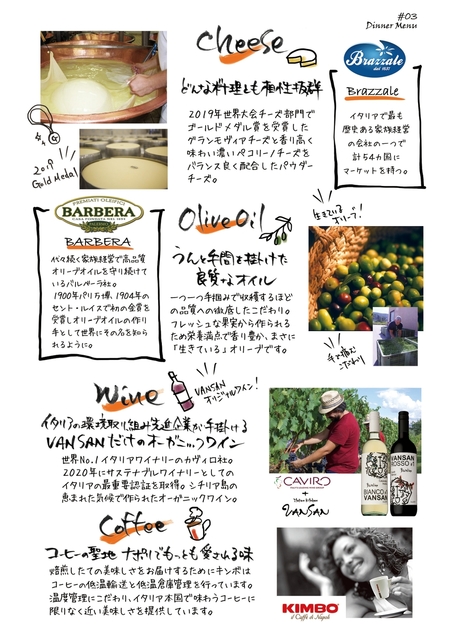 #03
Dinner Menu
Cheese
どんな料理とも相性抜群
2019年世界大会チーズ部門で
ゴールドメダル賞を受賞した
グランモラヴィアチーズと香り高く
味わい濃いペコリーノチーズを
バランス良く配合したパウダー
チーズ。
2019
Gold Medal
Brazzale
dal 1831
Brazzale
イタリアで最も
歴史ある家族経営
の会社の一つで
計54カ国に
マーケットを持つ。
PREMIATI OLEIFICI
BARBERA
BARBERA
代々続く家族経営で高品質
オリーブオイルを守り続けて
いるバルベーラ社。
1900年パリ万博、1904年の
セント・ルイスで初の金賞を
受賞しオリーブオイルの作り
手として世界にその名を知ら
れるように。
Olive Oil
うんと手間を掛けた
良質なオイル
一つ一つ手摘みで収穫するほど
の品質への徹底したこだわり。
フレッシュな果実から作られる
ため栄養満点で香り豊か、まさに
「生きている」オリーブです。
生きているオリーブ!
手で摘む
こだわり
Wine
VANSAN
オリジナルワイン!
イタリアの環境取り組み先進企業が手掛ける
VANSANだけのオーガニックワイン
世界No.1イタリアワイナリーのカヴィロ社。
2020年にサステナブルワイナリーとしての
イタリアの最重要認証を取得。シチリア島の
恵まれた気候で作られたオーガニックワイン。
CAVIRO
+
Italian Kitchen
VANSAN
BIANCO di
VANSAN
VANSAN
ROSSO v1
Coffee
コーヒーの聖地 ナポリでもっとも愛される味
焙煎したての美味しさをお届けするためにキンボは
コーヒーの低温輸送と低温倉庫管理を行っています。
温度管理にこだわり、イタリア本国で味わうコーヒーに
限りなく近い美味しさを提供しています。
KIMBO
il Caffè di Napoli